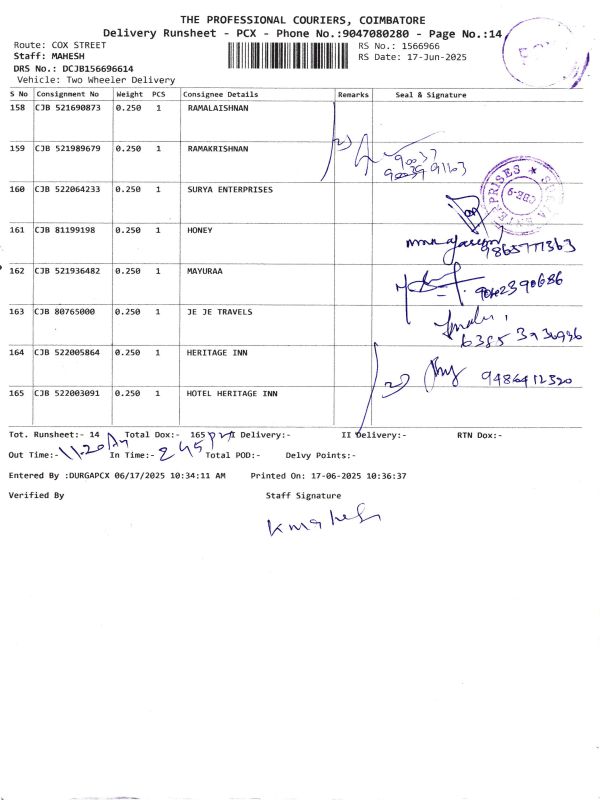 THE PROFESSIONAL COURIERS, COIMBATORE
Delivery Runsheet - PCX - Phone No.:9047080280 - Page No.:14
Route: COX STREET RS No.: 1566966
Staff: MAHESH RS Date: 17-Jun-2025
DRS No.: DCJB156696614
Vehicle: Two Wheeler Delivery
S No Consignment No Weight PCS Consignee Details Remarks Seal & Signature
158 CJB 521690873 0.250 1 RAMALAISHNAN
159 CJB 521989679 0.250 1 RAMAKRISHNAN
160 CJB 522064233 0.250 1 SURYA ENTERPRISES
161 CJB 81199198 0.250 1 HONEY
9865777363
162 CJB 521936482 0.250 1 MAYURAA
163 CJB 80765000 0.250 1 JE JE TRAVELS
164 CJB 522005864 0.250 1 HERITAGE INN
9486412320
165 CJB 522003091 0.250 1 HOTEL HERITAGE INN
Tot. Runsheet:- 14 Total Dox:- 165 I Delivery:- II Delivery:- RTN Dox:-
Out Time:- 11.20 In Time:- 2 45 Total POD:- Delvy Points:-
Entered By :DURGAPCX 06/17/2025 10:34:11 AM Printed On: 17-06-2025 10:36:37
Verified By Staff Signature
K mahesh